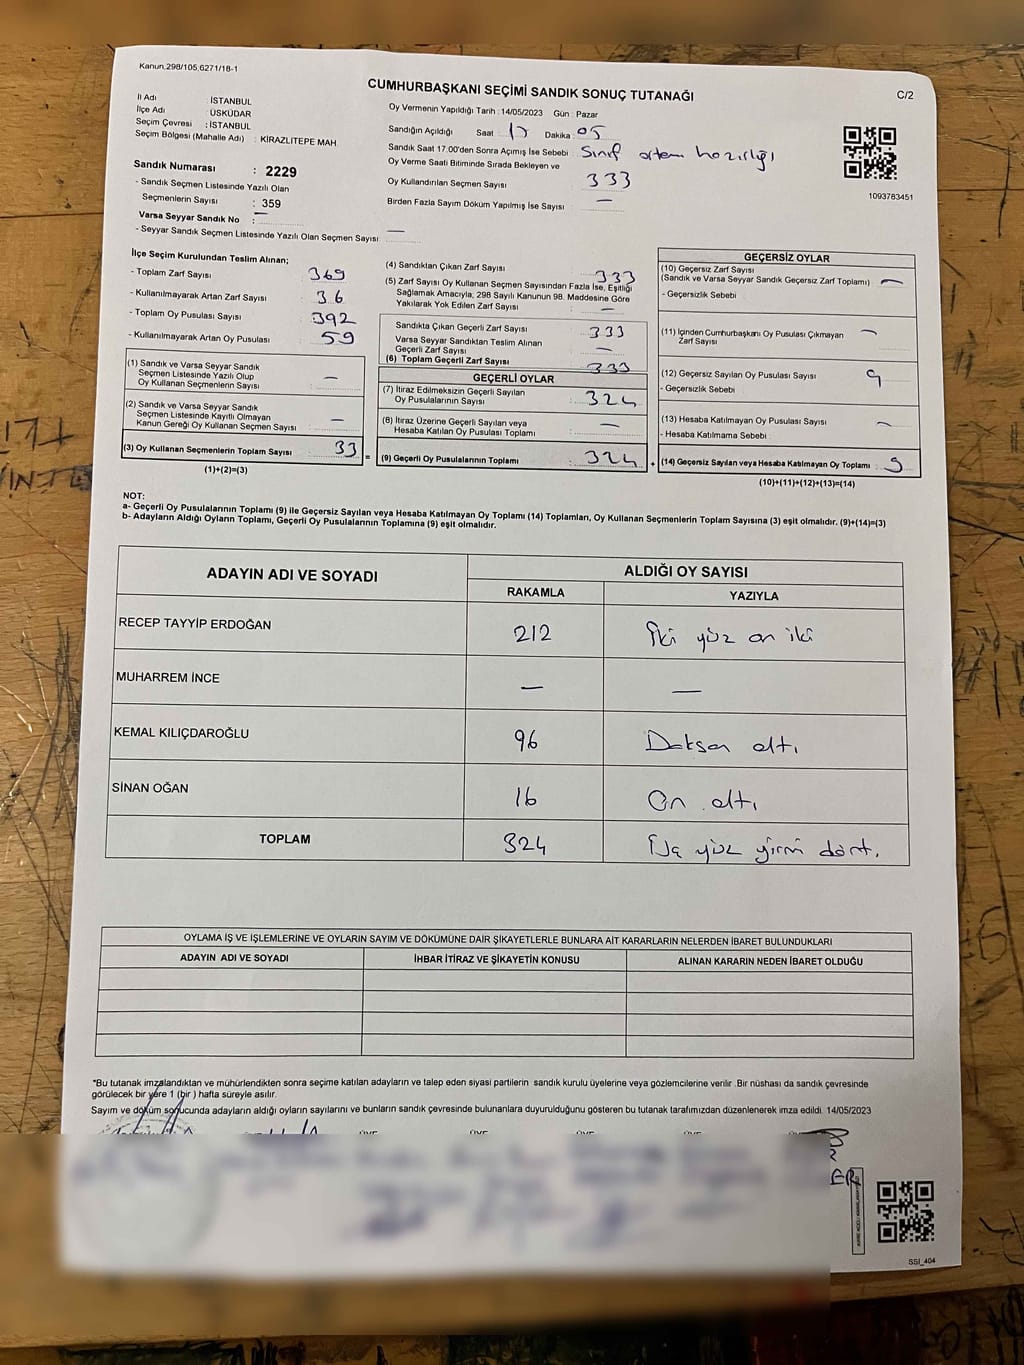 Kanun;298/105;6271/18-1
CUMHURBAŞKANI SEÇİMİ SANDIK SONUÇ TUTANAĞI
C/2
İl Adı : İSTANBUL
İlçe Adı : ÜSKÜDAR
Seçim Çevresi : İSTANBUL
Seçim Bölgesi (Mahalle Adı) : KİRAZLITEPE MAH.
Sandık Numarası : 2229
- Sandık Seçmen Listesinde Yazılı Olan
Seçmenlerin Sayısı : 359
Varsa Seyyar Sandık No : —
- Seyyar Sandık Seçmen Listesinde Yazılı Olan Seçmen Sayısı: —
Oy Vermenin Yapıldığı Tarih : 14/05/2023 Gün : Pazar
Sandığın Açıldığı Saat 17 Dakika : 05
Sandık Saat 17.00'den Sonra Açımış İse Sebebi : Sınıf ortam hazırlığı
Oy Verme Saati Bitiminde Sırada Bekleyen ve
Oy Kullandırılan Seçmen Sayısı 333
Birden Fazla Sayım Döküm Yapılmış İse Sayısı : —
1093763451
İlçe Seçim Kurulundan Teslim Alınan;
- Toplam Zarf Sayısı 369
- Kullanılmayarak Artan Zarf Sayısı : 36
- Toplam Oy Pusulası Sayısı : 392
- Kullanılmayarak Artan Oy Pusulası : 59
(1) Sandık ve Varsa Seyyar Sandık
Seçmen Listesinde Yazılı Olup
Oy Kullanan Seçmenlerin Sayısı : —
(2) Sandık ve Varsa Seyyar Sandık
Seçmen Listesinde Kayıtlı Olmayan
Kanun Gereği Oy Kullanan Seçmen Sayısı : —
(3) Oy Kullanan Seçmenlerin Toplam Sayısı : 33
(1)+(2)=(3)
=
(4) Sandıktan Çıkan Zarf Sayısı : 333
(5) Zarf Sayısı Oy Kullanan Seçmen Sayısından Fazla İse, Eşitliği
Sağlamak Amacıyla; 298 Sayılı Kanunun 98. Maddesine Göre
Yakılarak Yok Edilen Zarf Sayısı : —
Sandıkta Çıkan Geçerli Zarf Sayısı : 333
Varsa Seyyar Sandıktan Teslim Alınan
Geçerli Zarf Sayısı : —
(6) Toplam Geçerli Zarf Sayısı : 333
GEÇERLİ OYLAR
(7) İtiraz Edilmeksizin Geçerli Sayılan
Oy Pusulalarının Sayısı : 324
(8) İtiraz Üzerine Geçerli Sayılan veya
Hesaba Katılan Oy Pusulası Toplamı : —
(9) Geçerli Oy Pusulalarının Toplamı : 324
+
GEÇERSİZ OYLAR
(10) Geçersiz Zarf Sayısı
(Sandık ve Varsa Seyyar Sandık Geçersiz Zarf Toplamı) : —
- Geçersizlik Sebebi
(11) İçinden Cumhurbaşkanı Oy Pusulası Çıkmayan
Zarf Sayısı : —
(12) Geçersiz Sayılan Oy Pusulası Sayısı : 9
- Geçersizlik Sebebi
(13) Hesaba Katılmayan Oy Pusulası Sayısı : —
- Hesaba Katılmama Sebebi
(14) Geçersiz Sayılan veya Hesaba Katılmayan Oy Toplamı : 9
(10)+(11)+(12)+(13)=(14)
NOT:
a- Geçerli Oy Pusulalarının Toplamı (9) ile Geçersiz Sayılan veya Hesaba Katılmayan Oy Toplamı (14) Toplamları, Oy Kullanan Seçmenlerin Toplam Sayısına (3) eşit olmalıdır. (9)+(14)=(3)
b- Adayların Aldığı Oyların Toplamı, Geçerli Oy Pusulalarının Toplamına (9) eşit olmalıdır.
ADAYIN ADI VE SOYADI
ALDIĞI OY SAYISI
RAKAMLA YAZIYLA
RECEP TAYYİP ERDOĞAN 212 İki yüz on iki
MUHARREM İNCE — —
KEMAL KILIÇDAROĞLU 96 Doksan altı
SİNAN OĞAN 16 On altı
TOPLAM 324 Üç yüz yirmi dört.
OYLAMA İŞ VE İŞLEMLERİNE VE OYLARIN SAYIM VE DÖKÜMÜNE DAİR ŞİKAYETLERLE BUNLARA AİT KARARLARIN NELERDEN İBARET BULUNDUKLARI
ADAYIN ADI VE SOYADI İHBAR İTİRAZ VE ŞİKAYETİN KONUSU ALINAN KARARIN NEDEN İBARET OLDUĞU
*Bu tutanak imzalandıktan ve mühürlendikten sonra seçime katılan adayların ve talep eden siyasi partilerin sandık kurulu üyelerine veya gözlemcilerine verilir .Bir nüshası da sandık çevresinde
görülecek bir yere 1 (bir ) hafta süreyle asılır.
Sayım ve döküm sonucunda adayların aldığı oyların sayılarını ve bunların sandık çevresinde bulunanlara duyurulduğunu gösteren bu tutanak tarafımızdan düzenlenerek imza edildi. 14/05/2023
SSI_404